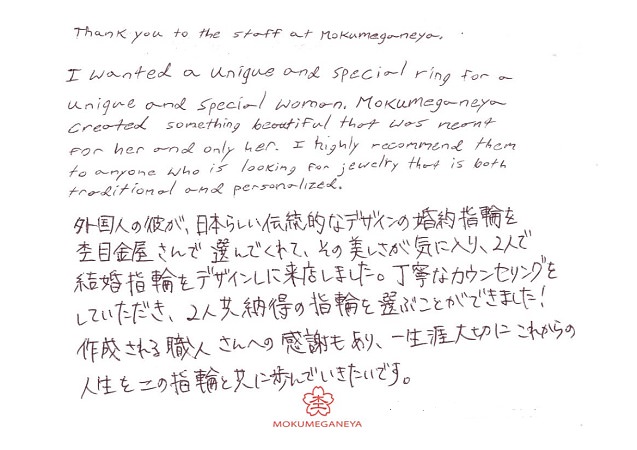 Thank you to the staff at Mokumeganeya.
I wanted a unique and special ring for a
unique and special woman. Mokumeganeya
created something beautiful that was meant
for her and only her. I highly recommend them
to anyone who is looking for jewelry that is both
traditional and personalized.
外国人の彼が、日本らしい伝統的なデザインの婚約指輪を
杢目金屋さんで選んでくれて、その美しさが気に入り、2人で
結婚指輪をデザインしに来店しました。丁寧なカウンセリングを
していただき、2人共納得の指輪を選ぶことができました!
作成される職人さんへの感謝もあり、一生涯大切にこれからの
人生をこの指輪と共に歩んでいきたいです。
杢
MOKUMEGANEYA